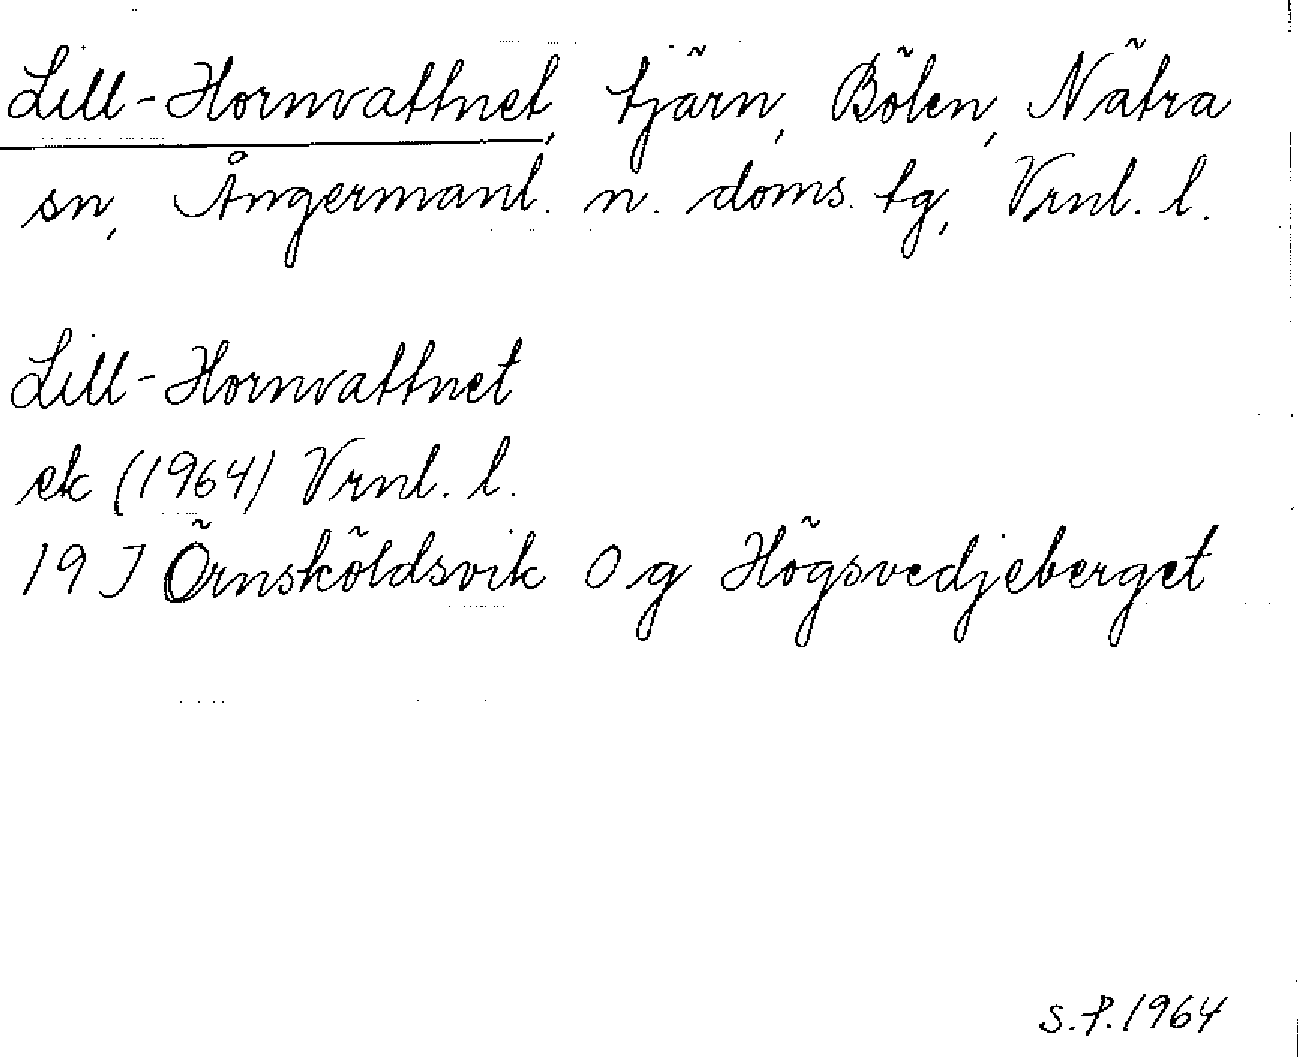 Lill-Hornvattnet, tjärn, Bölen, Nätra
sn, Ångermanl. n. doms. tg, Vrnl. l.
Lill-Hornvattnet
ek (1964) Vrnl. l.
19 J Örnsköldsvik 0 g Högsvedjeberget
S.P. 1964